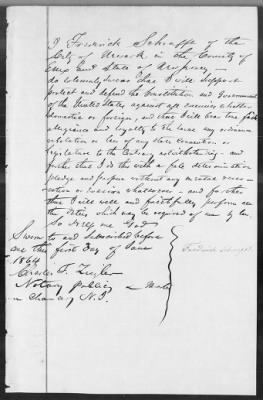 I Fredrick Schnapff of the
City of Newark in the County of
Essex and State of New Jersey -
do solemnly swear that I will support
protect and defend the Constitution and Government
of the United States against all enemies whether
domestic or foreign, and that I will bear true faith
allegiance and loyalty to the same any ordinance
resolution or law of any State Convention or
Legislature to the Contrary notwithstanding - and
further that I do this with a full determination
pledge and purpose without any mental reser-
vation or evasion whatsoever - and further
that I will well and faithfully perform all
the duties which may be required of me by law
So Help me God
Sworn to and Subscribed before
me this first Day of June
1864
Charles F. Zeigler
Notary public &
in Chancery N.J.